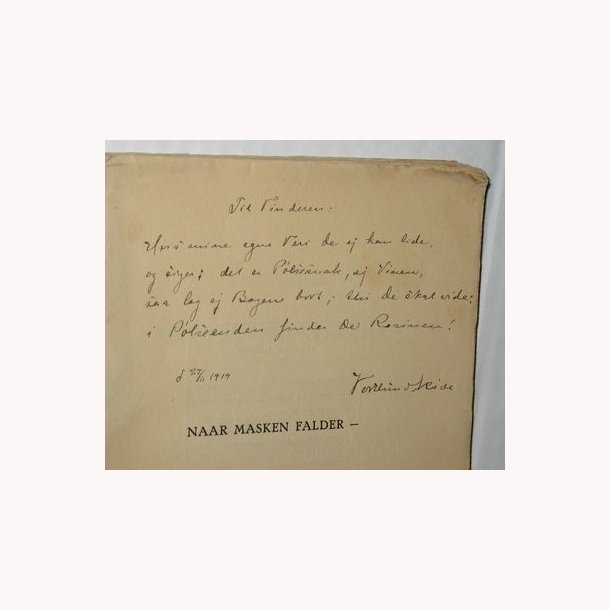 Til Vinderen:
Hvis mine egne Vers De ej kan lide,
og siger; det er Pølsesnak, ej Vinen,
saa læg ej Bogen bort; thi De skal vide:
i Pølseenden findes der Rosinen!
d 27/11 1919
NAAR MASKEN FALDER —